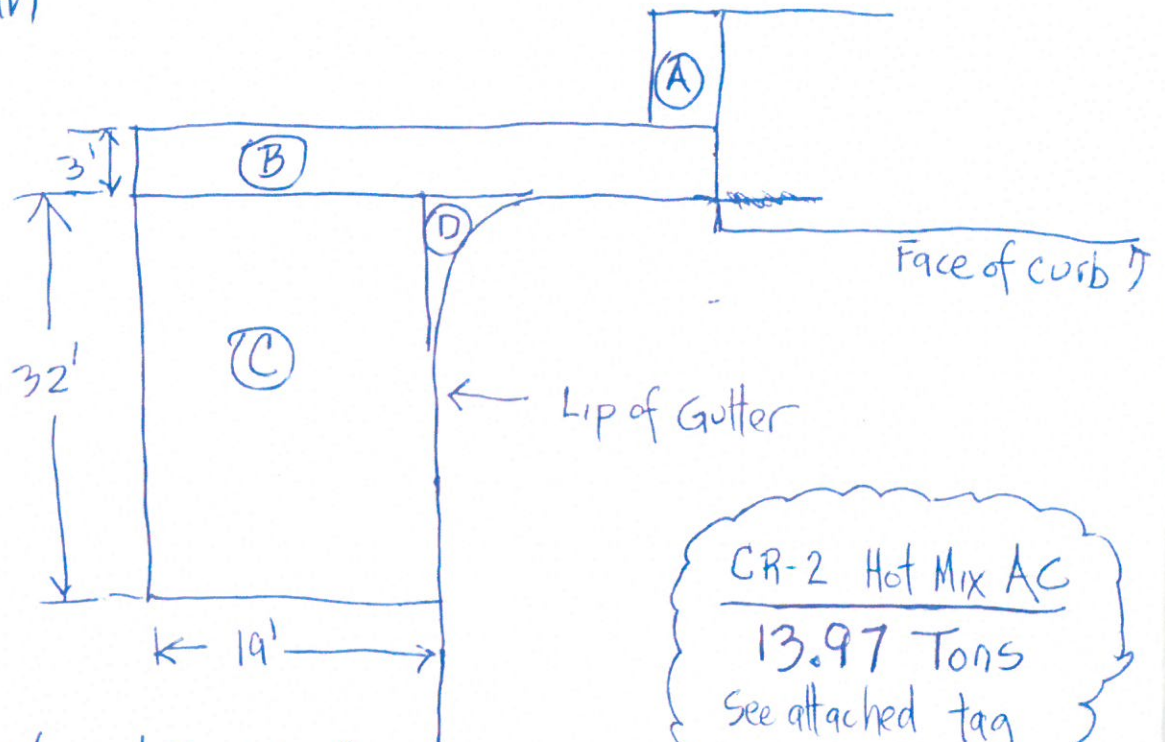 A
3'
B
D
Face of curb
32'
C
Lip of Gutter
CR-2 Hot Mix AC
13.97 Tons
19'
See attached tag